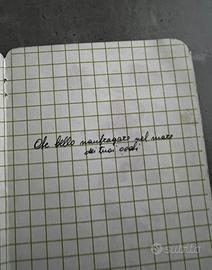 Che bello naufragare nel mare
dei tuoi occhi
Subito